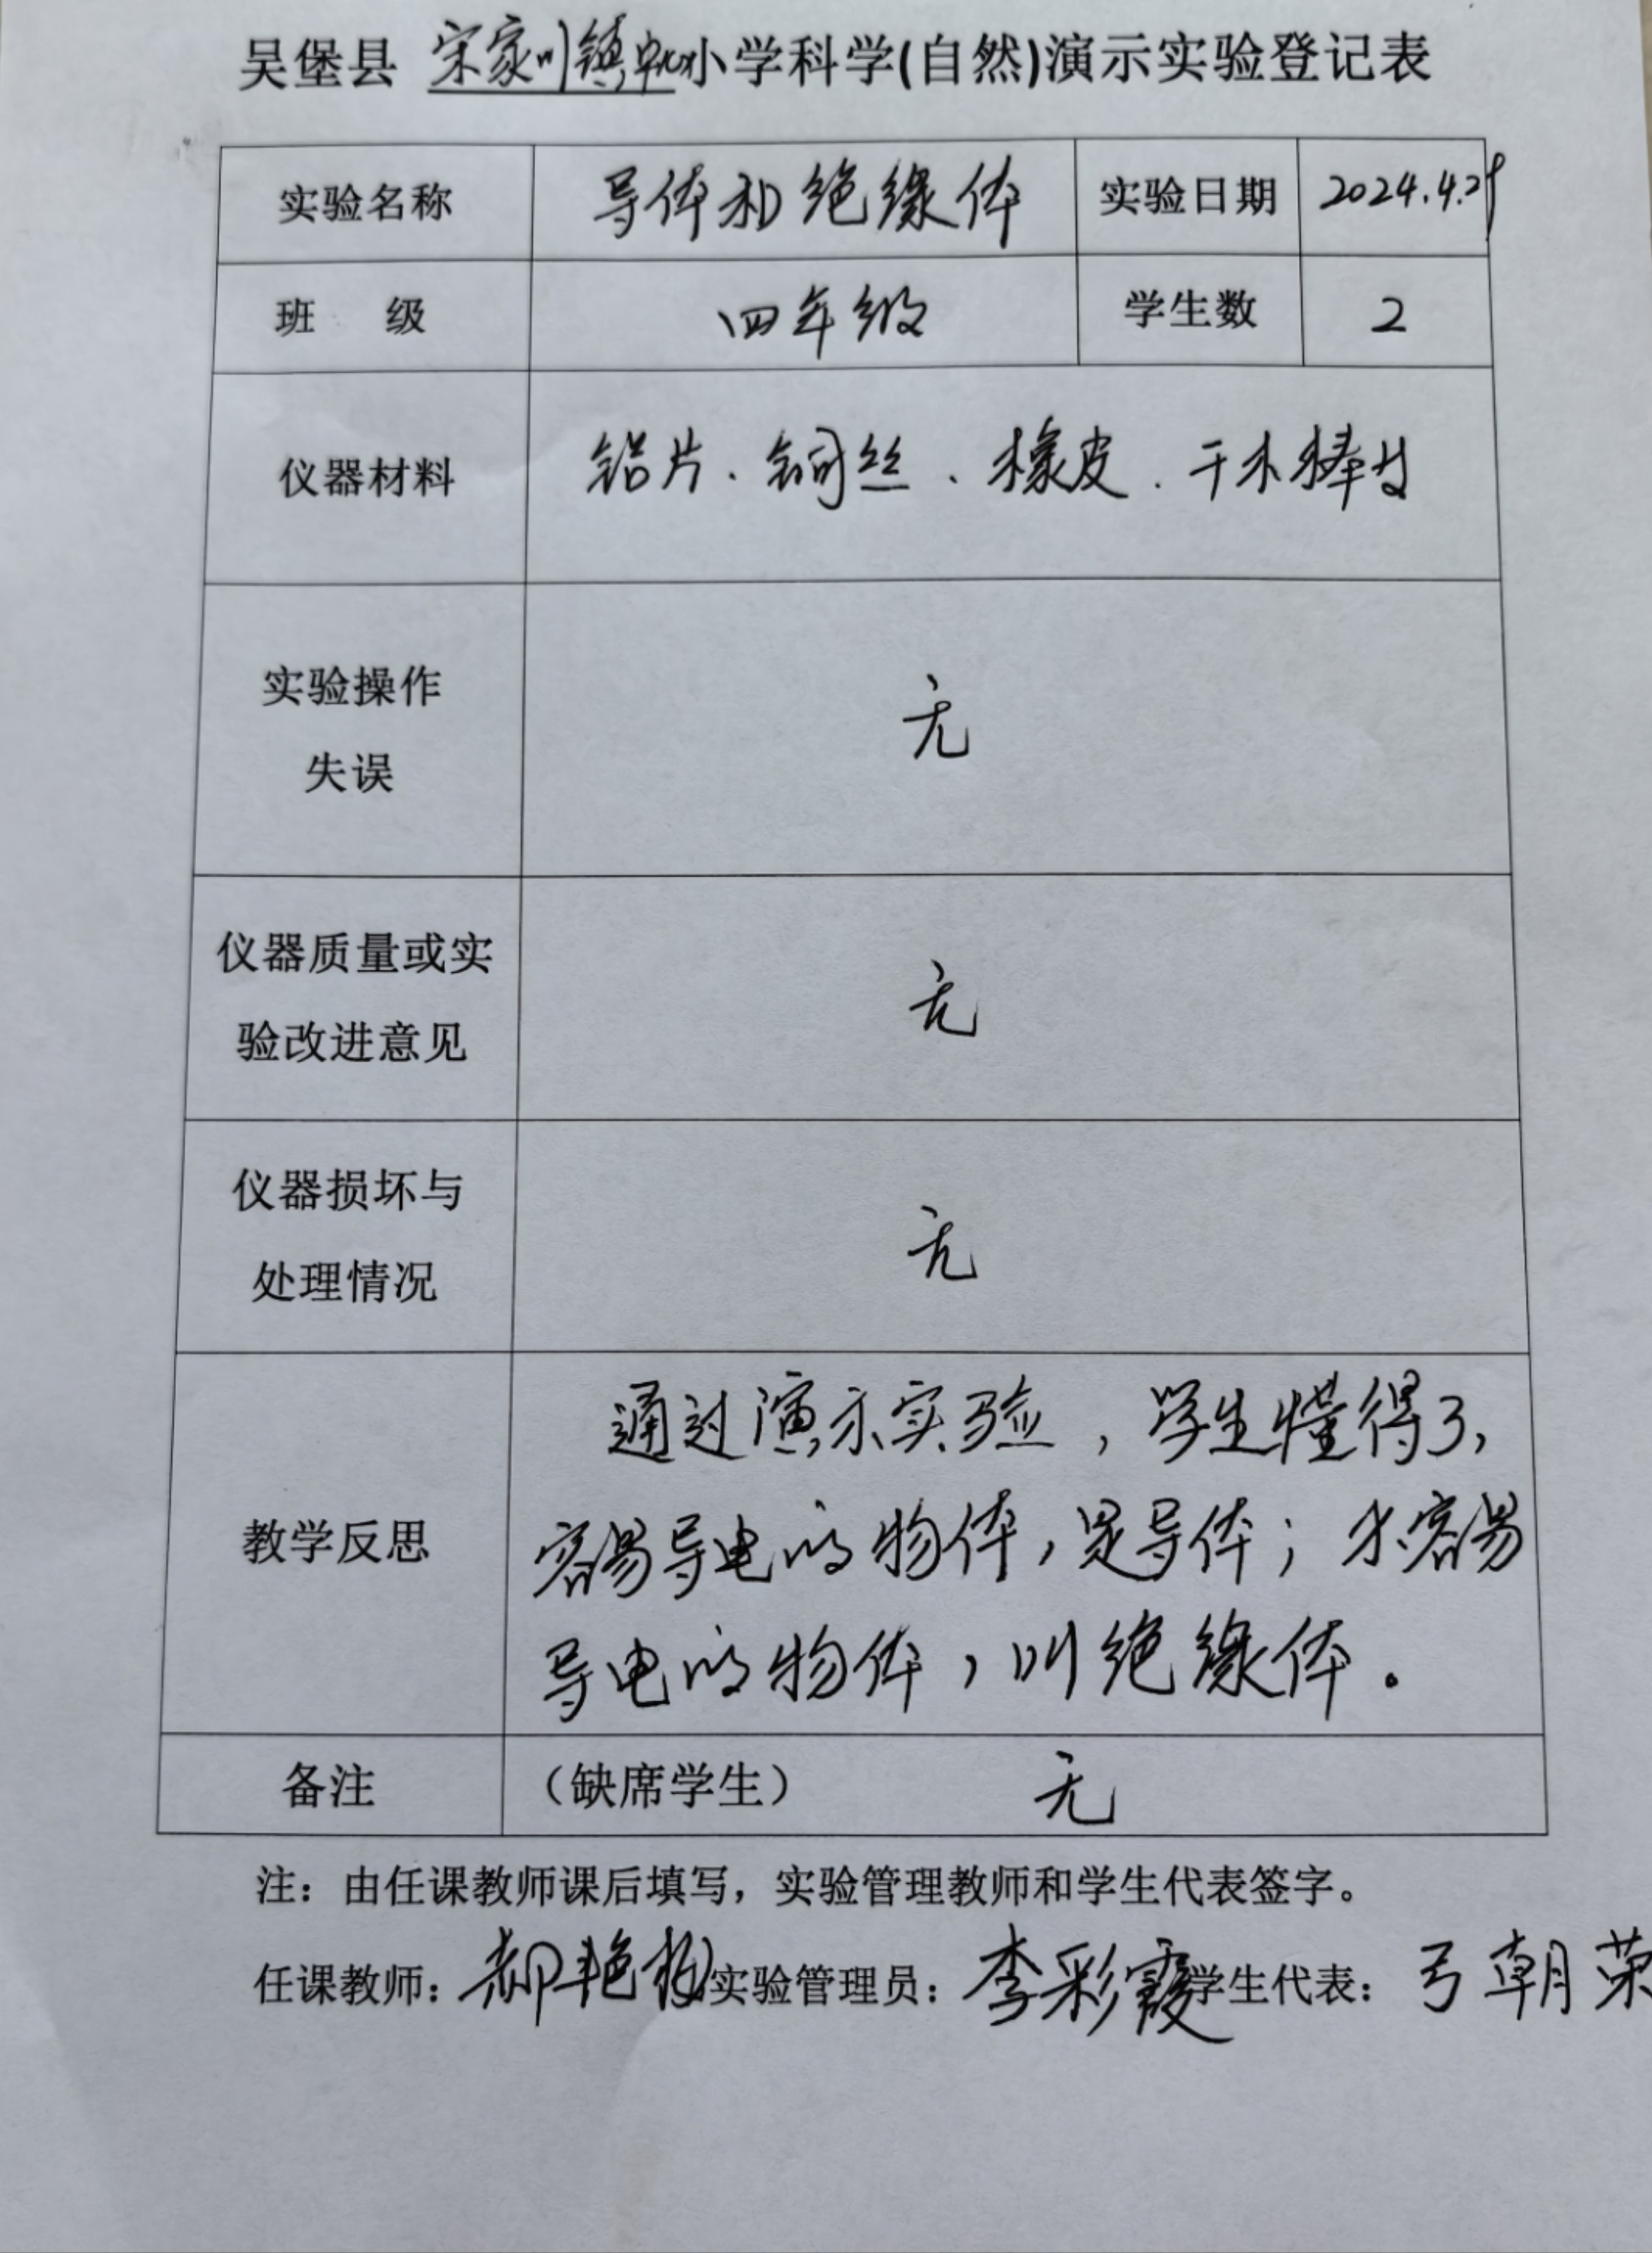 吴堡县 宋家川镇中心小学科学(自然)演示实验登记表
实验名称 导体和绝缘体 实验日期 2024.4.29
班 级 四年级 学生数 2
仪器材料 铝片、铜丝、橡皮、干木棒等
实验操作
失误
无
仪器质量或实
验改进意见
无
仪器损坏与
处理情况
无
教学反思
通过演示实验，学生懂得了，
容易导电的物体，是导体；不容易
导电的物体，叫绝缘体。
备注 （缺席学生） 无
注：由任课教师课后填写，实验管理教师和学生代表签字。
任课教师：郝艳 实验管理员：李彩霞 学生代表：弓朝荣